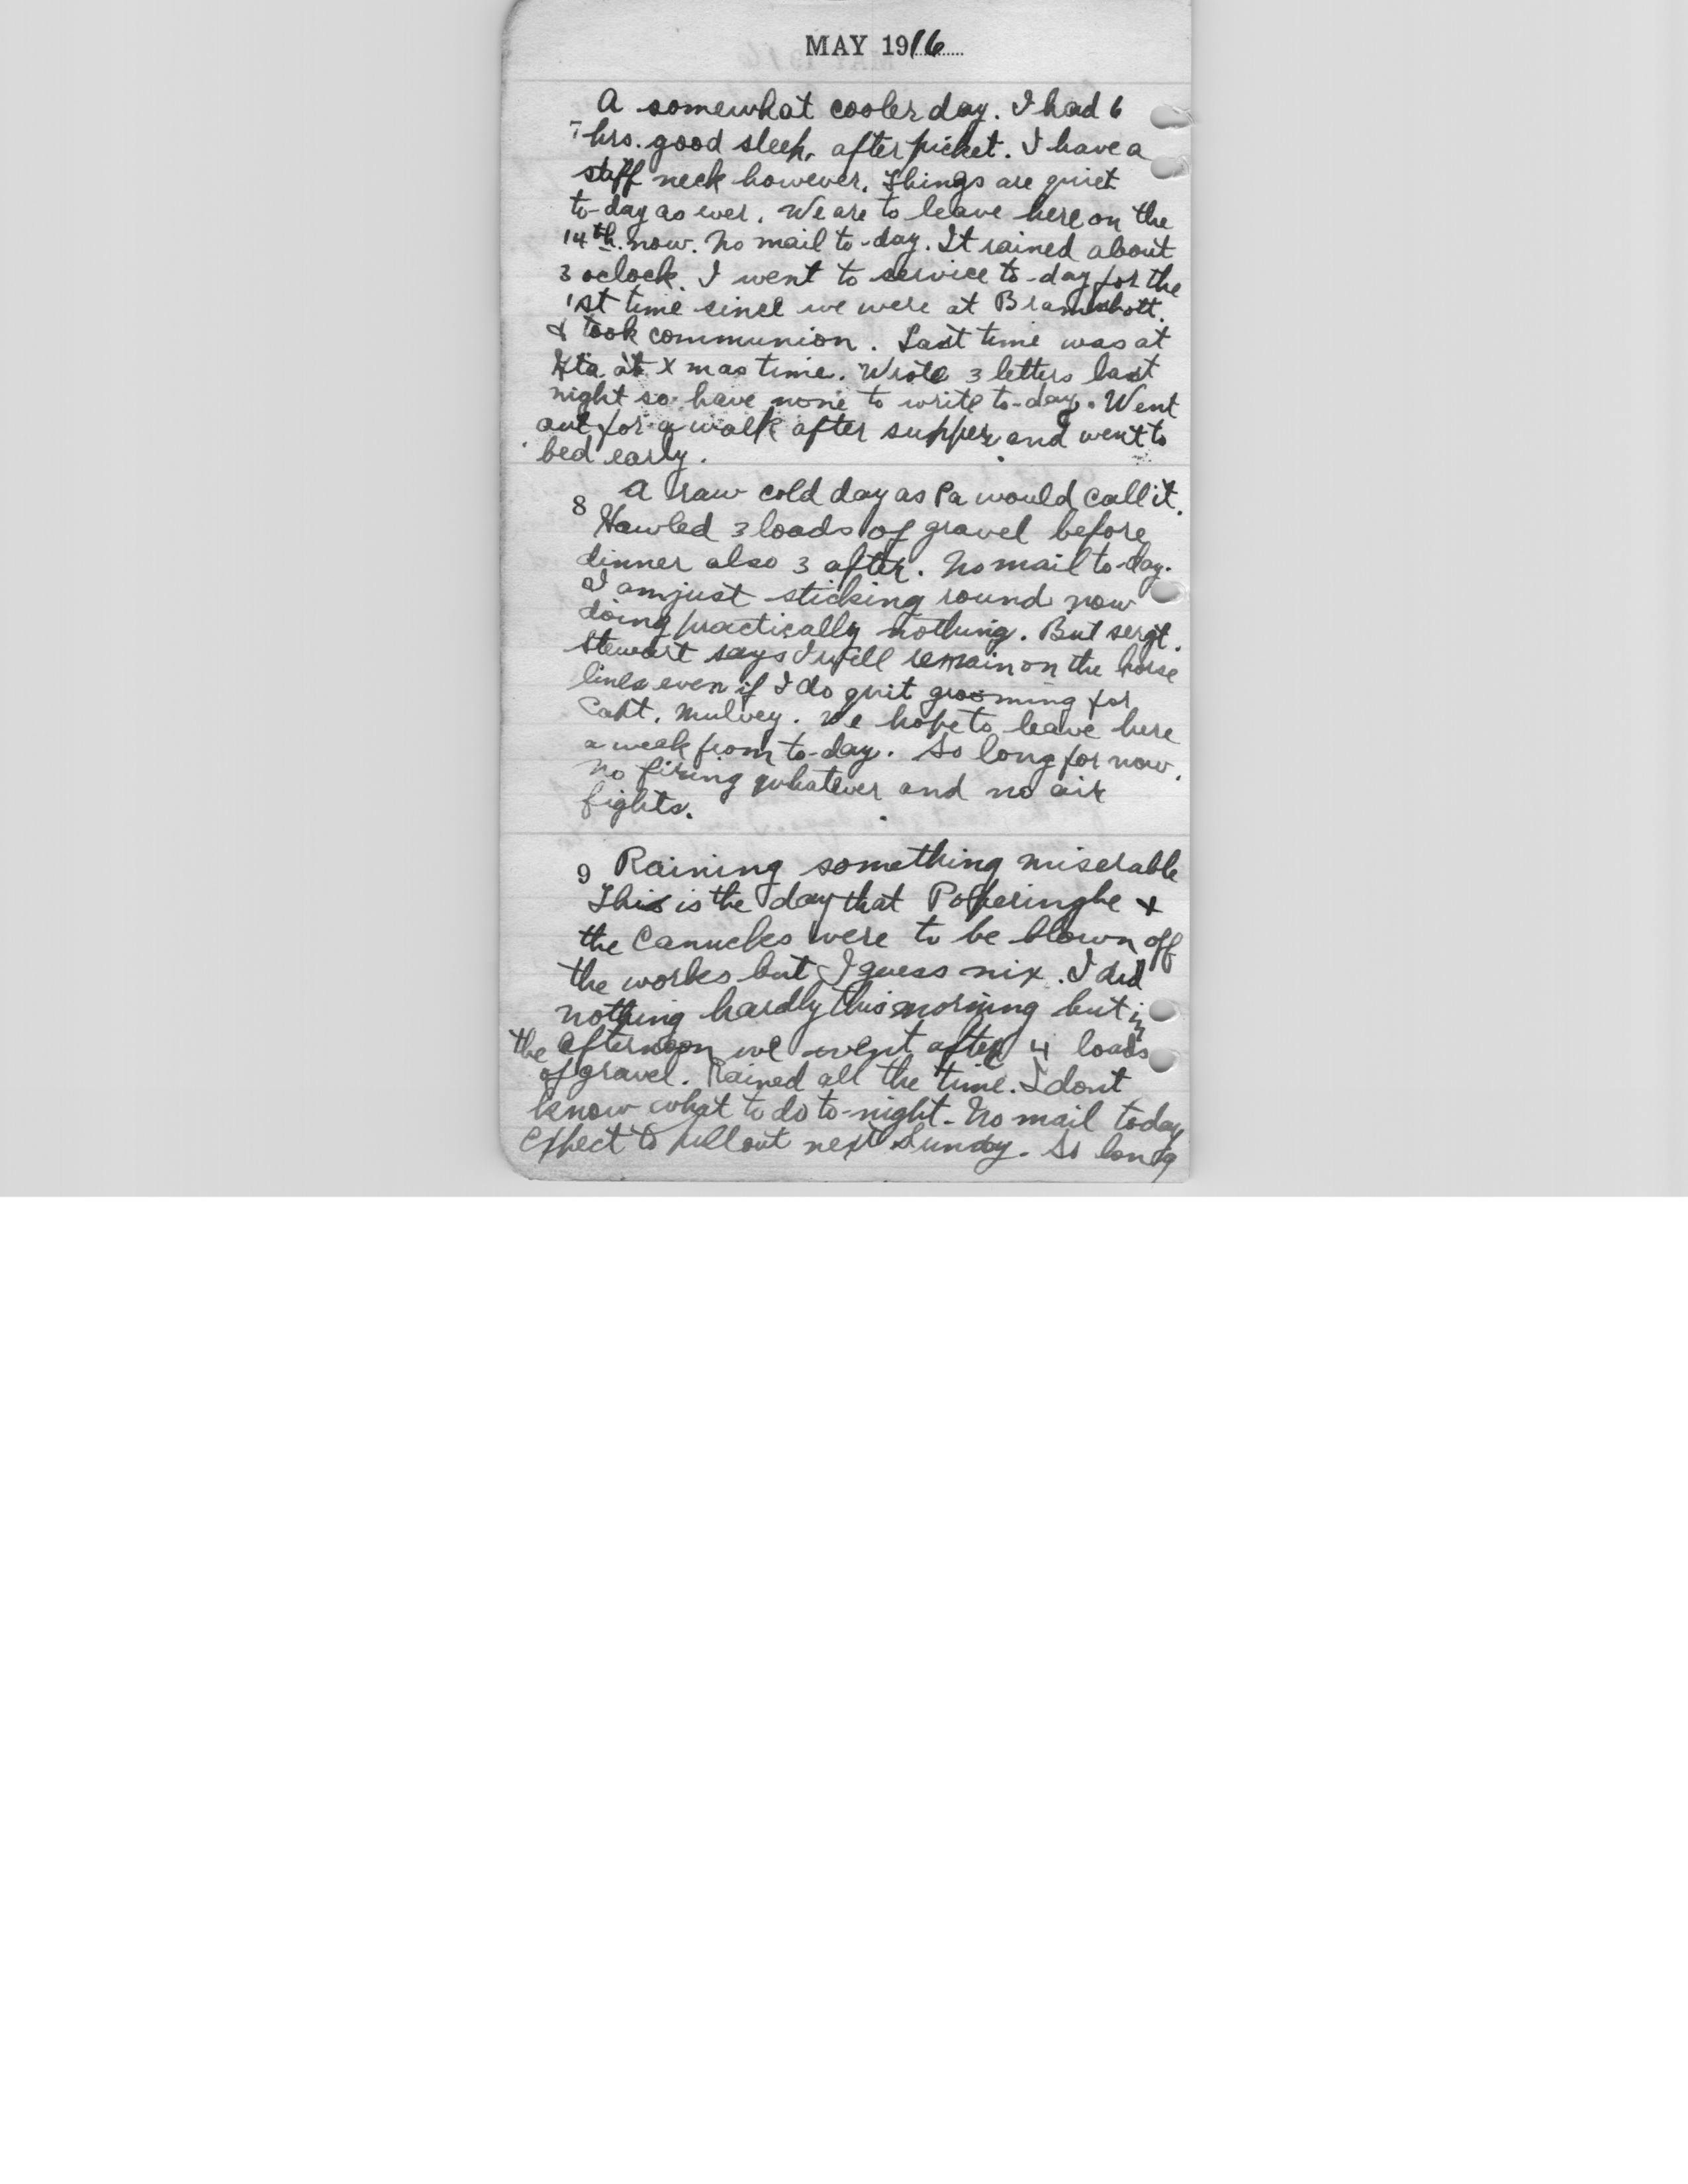 MAY 1916
A somewhat cooler day. I had 6
7 hrs. good sleep, after picket. I have a
stiff neck however. Things are quiet
to-day as ever. We are to leave here on the
14th. now. No mail to-day. It rained about
3 oclock. I went to service to-day for the
1st time since we were at Bramshott.
& took communion. Last time was at
at Xmas time. Wrote 3 letters last
night so have none to write to-day. Went
out for a walk after supper and went to
bed early.
A raw cold day as Pa would call it.
8 Hawled 3 loads of gravel before
dinner also 3 after. No mail to-day.
I am just sticking round now
doing practically nothing. But sergt.
Stewart says I will remain on the horse
lines even if I do quit grooming for
Capt. Mulvey. We hope to leave here
a week from to-day. So long for now.
no firing whatever and no air
fights.
9 Raining something miserable
This is the day that Poperinghe &
the Canucks were to be blown off
the works but I guess nix. I did
nothing hardly this morning but in
the afternoon we went after 4 loads
of gravel. Rained all the time. I dont
know what to do to-night. No mail today
Expect to pull out next Sunday. So long